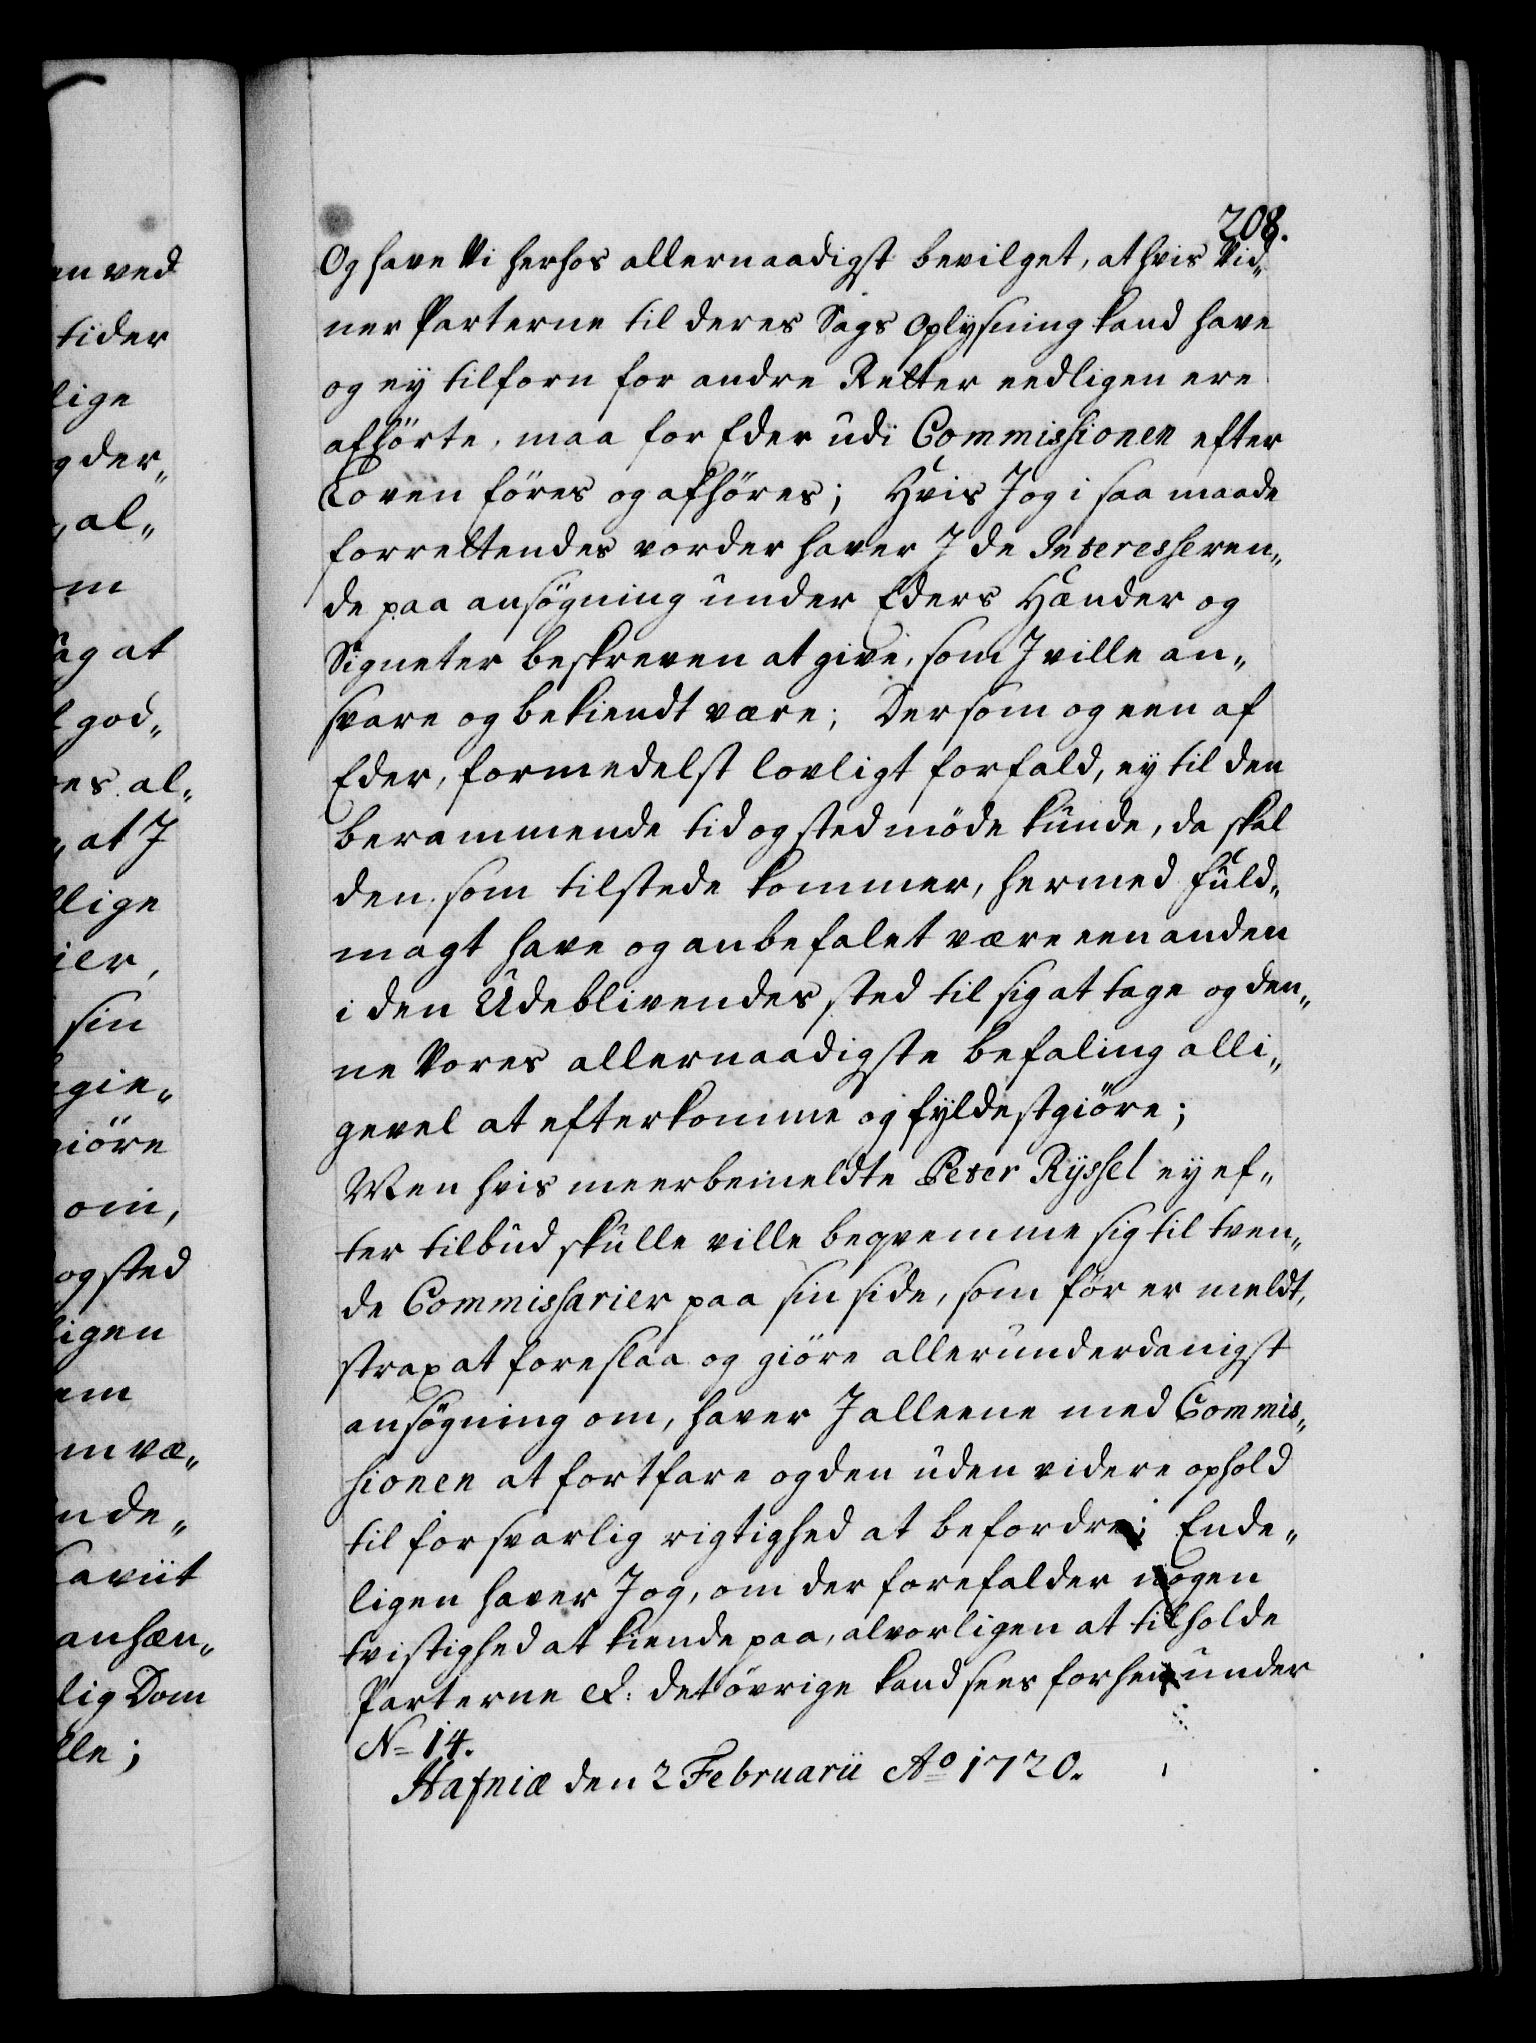 208.
Og have Vi herhos allernaadigst bevilget, at hvis Vid„
ner Parterne til deres Sags Oplysning kand have
og ey tilforn for andre Retter eedligen ere
afhørte, maa for Eder udi Commissionen efter
Loven føres og afhøres; Hvis J og i saa maade
forrettendes vorder haver J de Interesseren„
de paa ansøgning under Eders Hænder og
Signeter beskreven at give, som J ville an„
svare og bekiendt være; Dersom og een af
Eder, formedelst lovligt forfald, ey til den
berammende tid og sted møde kunde, da skal
den som tilstede kommer, hermed fuld„
magt have og anbefalet være een anden
i den Udeblivendes sted til sig at tage og den„
ne Vores allernaadigste befaling alli„
gevel at efterkomme og fyldestgiøre;
Men hvis meerbemeldte Peter Ryssel ey ef„
ter tilbud skulle ville beqvemme sig til tven„
de Commissarier paa sin side, som før er meldt,
strax at foreslaa og giøre allerunderdanigst
ansøgning om, haver J alleene med Commis„
sionen at fortfare og den uden videre ophold
til forsvarlig rigtighed at befordre; Ende„
ligen haver J og, om der forefalder nogen
tvistighed at kiende paa, alvorligen at tilholde
Parterne &: det øvrige kand sees forhen under
No 14.
Hafniæ den 2 Februarii Ao 1720.
en ved
tider
lige
g der„
al„
m
Sag at
god„
es al„
at J
llige
ier,
sin
gie„
giøre
om,
og sted
ligen
em
m væ„
nde„
Caviit
anhæn„
lig Dom
lle;